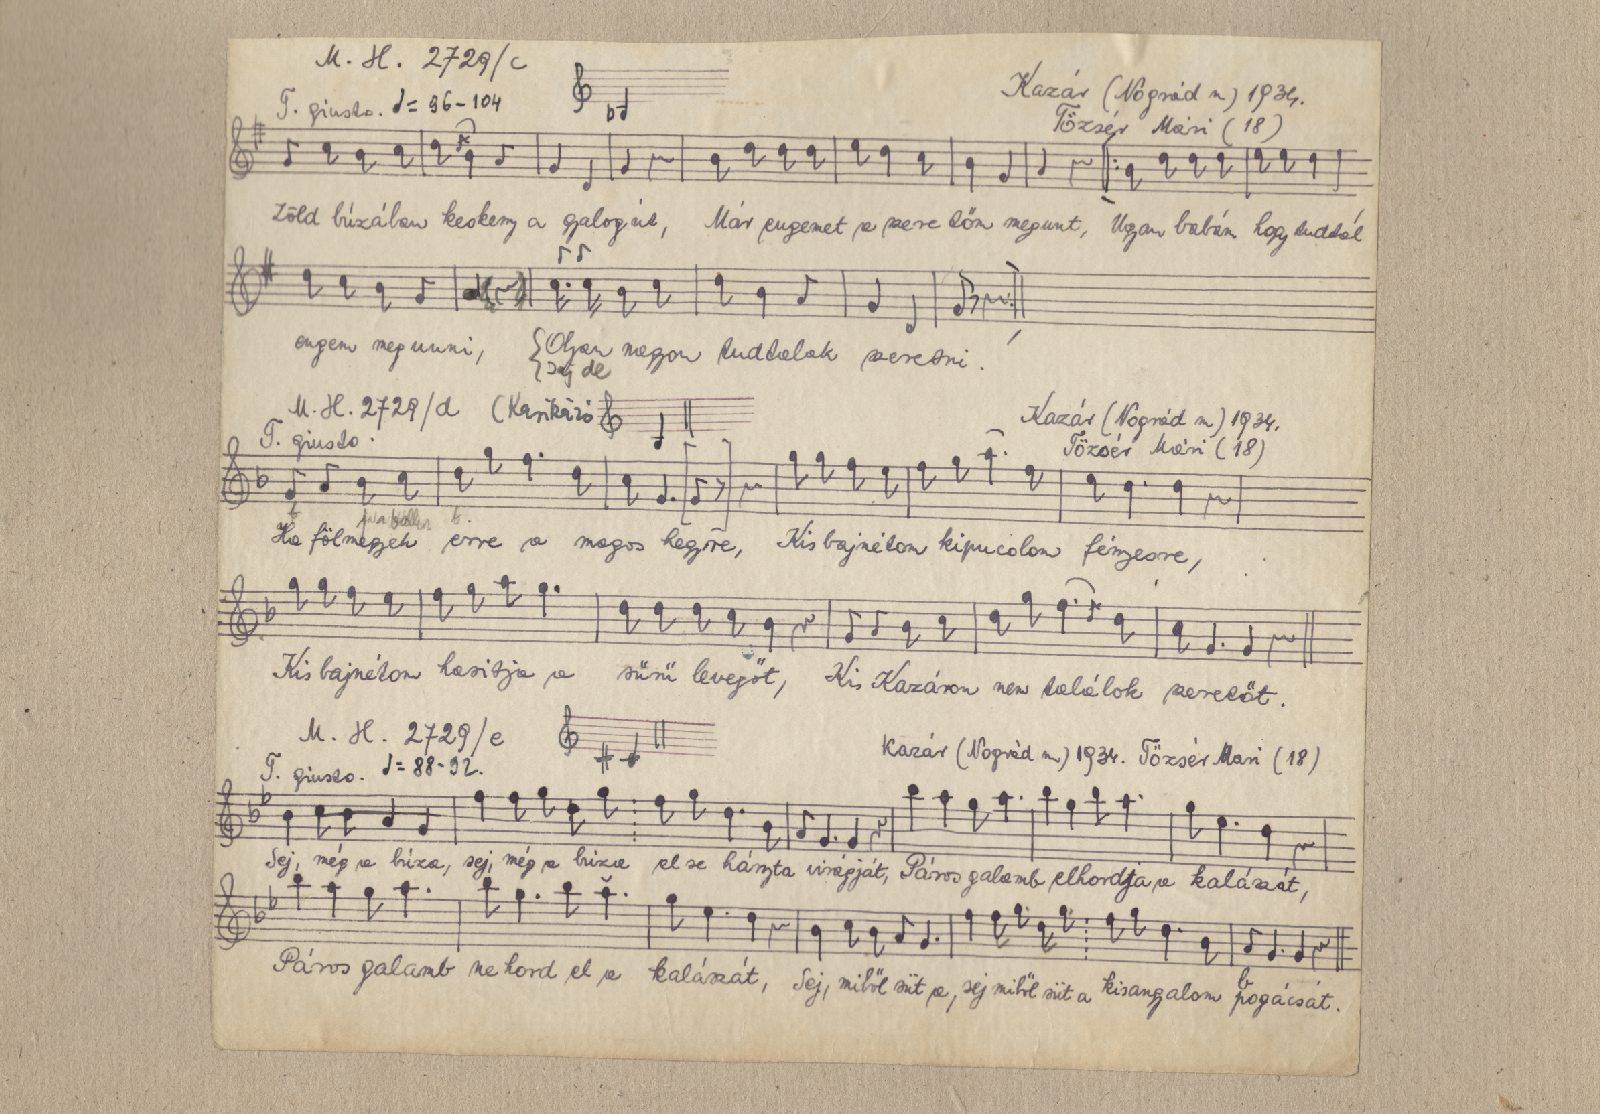 M. H. 2729/c
Kazár (Nográd m) 1934.
T. giusto. ♩= 96-104
Tőzsér Mári (18)
Zöld búzában keskeny a gyalogút, Már engemet a szeretőm megunt, Ugyan babám hogy tudtál
engem megunni, Olyan nagyon tudtalak szeretni.
Jaj de
M. H. 2729/d (Karikázó
Kazár (Nográd m) 1934.
T. giusto.
Tőzsér Mári (18)
Ha fölmegyek erre a magos hegyre, Kis bajnétom kipucolom fényesre,
Kis bajnétom hasítja a sűrű levegőt, Kis Kazáron nem találok szeretőt.
M. H. 2729/e
Kazár (Nográd m) 1934. Tőzsér Mári (18)
T. giusto. ♩= 88-92.
Sej, még a búza, sej, még a búza el se hányta virágját, Páros galamb elhordja a kalászát,
Páros galamb ne hord el a kalászát, Sej, miből süt a, sej miből süt a kisangyalom pogácsát.